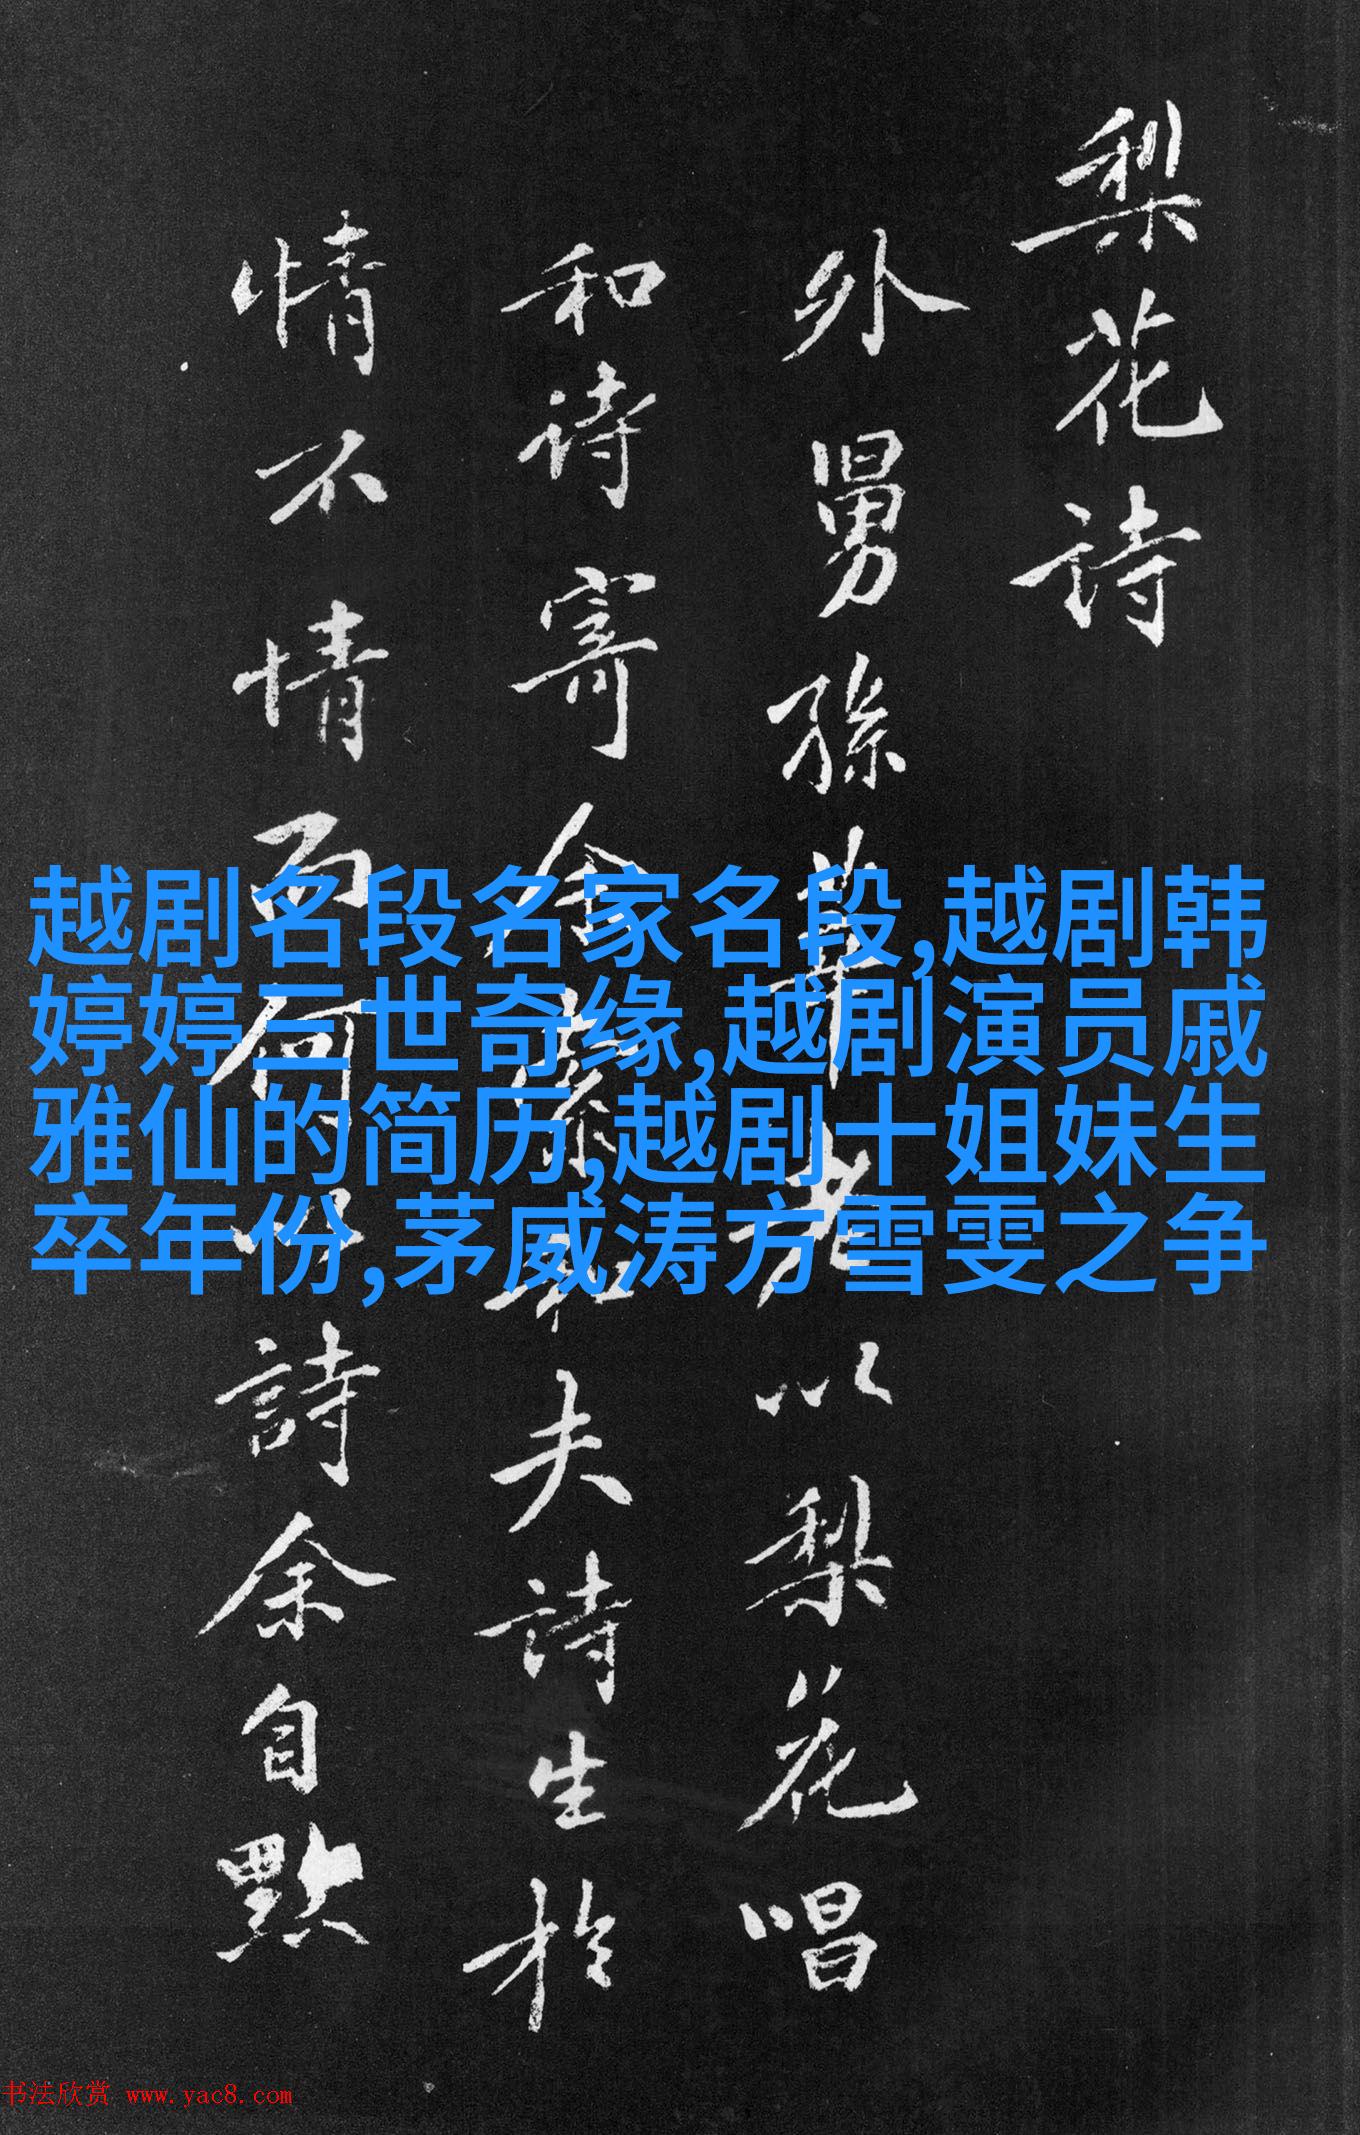 梨花诗
外舅孙莘老以梨花唱
和诗寄余索和夫诗生於
情不情而何以詩余自點
越剧名段名家名段,越剧韩
婷婷三世奇缘,越剧演员戚
雅仙的简历,越剧十姐妹生
卒年份,茅威涛方雪雯之争
书法欣赏 www.yac8.com